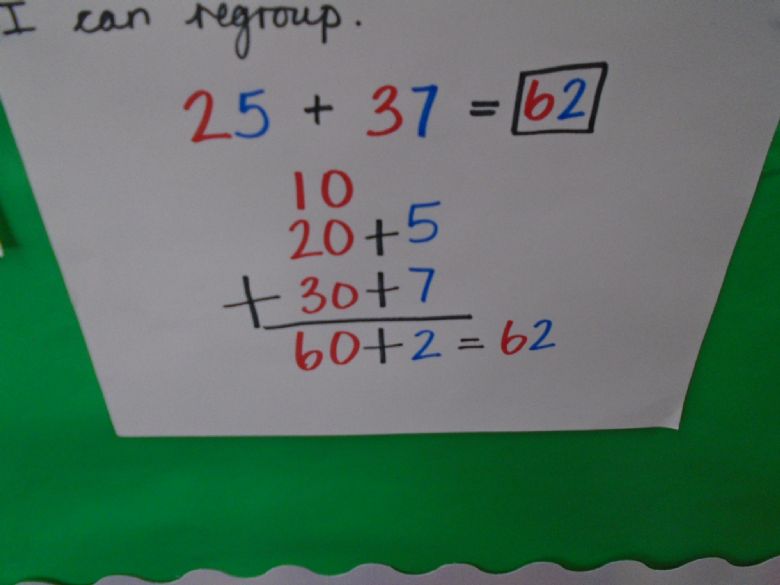 I can regroup.
25 + 37 = 62
10
20 + 5
+ 30 + 7
60 + 2 = 62